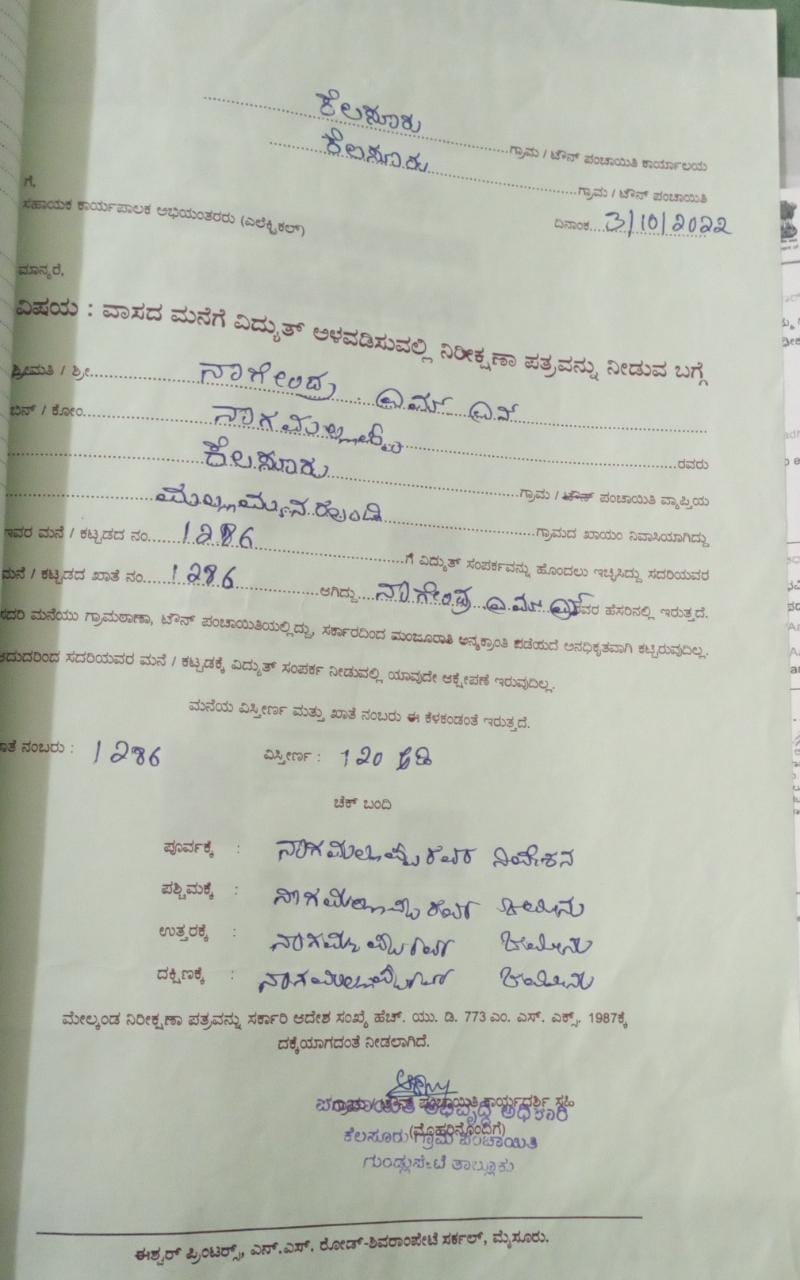 ಕೆಲಸೂರು ಗ್ರಾಮ / ಟೌನ್ ಪಂಚಾಯಿತಿ ಕಾರ್ಯಾಲಯ
ಕೆಲಸೂರು ಗ್ರಾಮ / ಟೌನ್ ಪಂಚಾಯಿತಿ
ಗೆ,
ದಿನಾಂಕ 3/10/2022
ಸಹಾಯಕ ಕಾರ್ಯಪಾಲಕ ಅಭಿಯಂತರರು (ಎಲೆಕ್ಟ್ರಿಕಲ್)
ಮಾನ್ಯರೆ,
ವಿಷಯ : ವಾಸದ ಮನೆಗೆ ವಿದ್ಯುತ್ ಅಳವಡಿಸುವಲ್ಲಿ ನಿರೀಕ್ಷಣಾ ಪತ್ರವನ್ನು ನೀಡುವ ಬಗ್ಗೆ
ಶ್ರೀಮತಿ / ಶ್ರೀ ನಾಗೇಂದ್ರ . ಎಮ್ ಎನ್
ಬಿನ್ / ಕೋಂ ನಾಗಮಲ್ಲಪ್ಪ ರವರು
ಕೆಲಸೂರು ಗ್ರಾಮ / ಟೌನ್ ಪಂಚಾಯಿತಿ ವ್ಯಾಪ್ತಿಯ
ಮಲ್ಲಮ್ಮನಹುಂಡಿ ಗ್ರಾಮದ ಖಾಯಂ ನಿವಾಸಿಯಾಗಿದ್ದು
ಇವರ ಮನೆ / ಕಟ್ಟಡದ ನಂ. 1286 ಗೆ ವಿದ್ಯುತ್ ಸಂಪರ್ಕವನ್ನು ಹೊಂದಲು ಇಚ್ಛಿಸಿದ್ದು ಸದರಿಯವರ
ಮನೆ / ಕಟ್ಟಡದ ಖಾತೆ ನಂ. 1286 ಆಗಿದ್ದು ನಾಗೇಂದ್ರ ಎ ಮ್ ಎನ್ ರವರ ಹೆಸರಿನಲ್ಲಿ ಇರುತ್ತದೆ.
ಸದರಿ ಮನೆಯು ಗ್ರಾಮಠಾಣಾ, ಟೌನ್ ಪಂಚಾಯಿತಿಯಲ್ಲಿದ್ದು, ಸರ್ಕಾರದಿಂದ ಮಂಜೂರಾತಿ ಅನ್ಯಕ್ರಾಂತಿ ಪಡೆಯದೆ ಅನಧಿಕೃತವಾಗಿ ಕಟ್ಟಿರುವುದಿಲ್ಲ.
ಆದುದರಿಂದ ಸದರಿಯವರ ಮನೆ / ಕಟ್ಟಡಕ್ಕೆ ವಿದ್ಯುತ್ ಸಂಪರ್ಕ ನೀಡುವಲ್ಲಿ ಯಾವುದೇ ಆಕ್ಷೇಪಣೆ ಇರುವುದಿಲ್ಲ.
ಮನೆಯ ವಿಸ್ತೀರ್ಣ ಮತ್ತು ಖಾತೆ ನಂಬರು ಈ ಕೆಳಕಂಡಂತೆ ಇರುತ್ತದೆ.
ಖಾತೆ ನಂಬರು : 1286 ವಿಸ್ತೀರ್ಣ : 120 ಅಡಿ
ಚೆಕ್ ಬಂದಿ
ಪೂರ್ವಕ್ಕೆ : ನಾಗಮಲ್ಲಪ್ಪರವರ ನಿವೇಶನ
ಪಶ್ಚಿಮಕ್ಕೆ : ನಾಗಮಲ್ಲಪ್ಪರವರ ಜಮೀನು
ಉತ್ತರಕ್ಕೆ : ಜಮೀನು
ದಕ್ಷಿಣಕ್ಕೆ : ಜಮೀನು
ಮೇಲ್ಕಂಡ ನಿರೀಕ್ಷಣಾ ಪತ್ರವನ್ನು ಸರ್ಕಾರಿ ಆದೇಶ ಸಂಖ್ಯೆ ಹೆಚ್. ಯು. ಡಿ. 773 ಎಂ. ಎಸ್. ಎಕ್ಸ್. 1987ಕ್ಕೆ
ದಕ್ಕೆಯಾಗದಂತೆ ನೀಡಲಾಗಿದೆ.
ಗ್ರಾಮ / ಟೌನ್ ಪಂಚಾಯಿತಿ ಕಾರ್ಯದರ್ಶಿ ಸಹಿ
ಪಂಚಾಯಿತಿ ಅಭಿವೃದ್ಧಿ ಅಧಿಕಾರಿ
(ಮೊಹರಿನೊಂದಿಗೆ)
ಕೆಲಸೂರು ಗ್ರಾಮ ಪಂಚಾಯಿತಿ
ಗುಂಡ್ಲುಪೇಟೆ ತಾಲ್ಲೂಕು
ಈಶ್ವರ್ ಪ್ರಿಂಟರ್ಸ್, ಎನ್.ಎಸ್. ರೋಡ್-ಶಿವರಾಂಪೇಟೆ ಸರ್ಕಲ್, ಮೈಸೂರು.